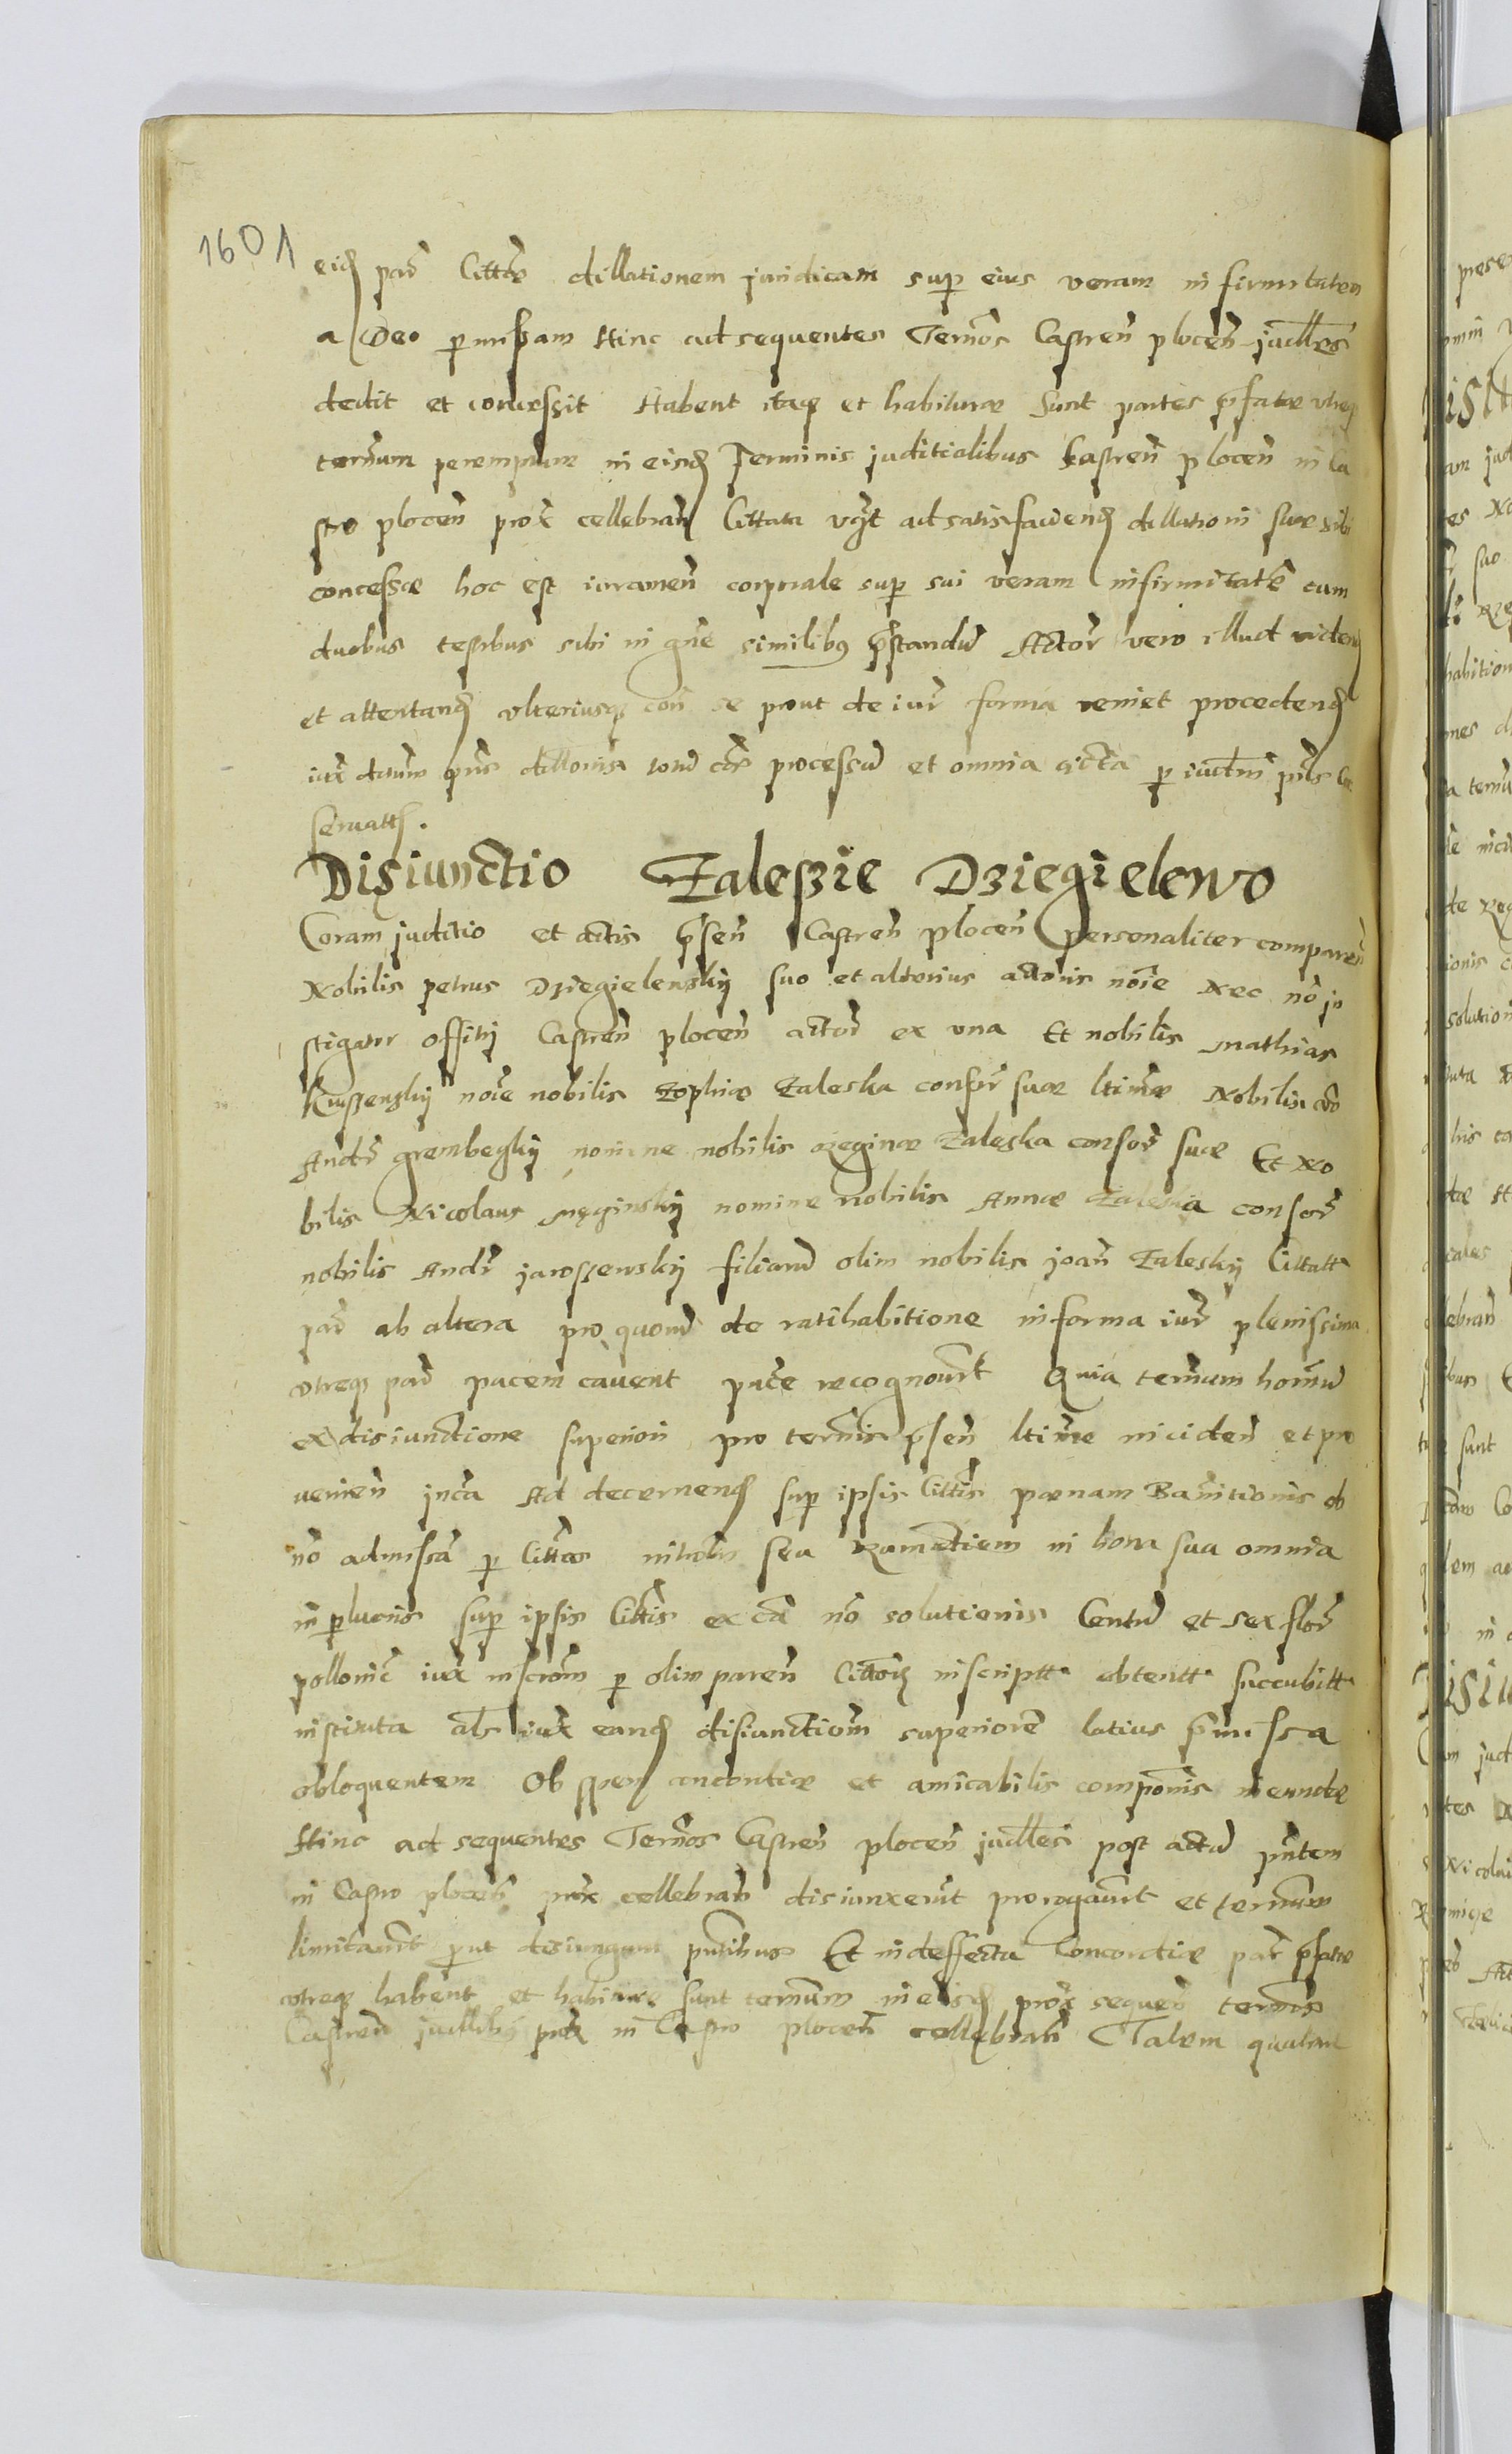 1601
eid parti Cittatae dillationem juridicam sup eius veram infirmitatem
a Deo pmissam Hinc ad sequentes Termos Castren plocen judlles
dedit et concessit Habent itaq et habiturae sunt partes pfatae vtreq
termum peremptum in eisd Terminis juditialibus Castren plocen in Ca
stro plocen prox cellebran Cittata vgt ad satisfaciend dillationi suae sibi
concessae hoc est iuramen corporale sup sui veram infirmitate cum
duobus testibus sibi in gne similibus pstandu Actor vero illud vidend
et attestand vlteriusq con se prout de iur forma veniet procedend
iux datum pns dillonis totu car processu et omnia acta p iudm pns
servatt.
Disiunctio Zaleszie Dziegielewo
Coram juditio et actis psen Castren plocen personaliter comparen
Nobilis petrus Dziegielewskij suo et alterius actoris noie Nec no in
stigator offitij Castren plocen actor ex vna Et nobilis Mathias
noie nobilis Zophiae Zaleska consor suae ltimae Nobilis
Andr grembeczkij nomine nobilis Reginae Zaleska consor suae Et No
bilis Nicolaus nomine nobilis Annae Zaleska consor
nobilis Andr jaroszewskij filiaru olim nobilis joan Zaleskij Cittatt
par ab altera pro quoru de ratihabitione in forma iur plenissima
vtreq par pacem cavent pace recognovrt Quia termum hornu
ex disiunctione superiori pro termis psen ltime inciden et pro
venien inca Ad decernend sup ipsis Cittis paenam Banitionis ob
no admissa p Cittos seu Rumatiem in bona sua omnia
sup ipsis Cittis ex ca no solutionis Centu et sex flor
pollonic iux inscrom p olim paren Cittor inscriptt obtentt succubitt
instituta als iux eand disiunctiom superiore latius pmissa
obloquentem Ob spem concordiae et amicabilis componis ineundae
Hinc ad sequentes Termos Castren plocen judlles post actu pntem
in Castro plocen prox cellebran disiunxerut prorogavrt et termum
limitavrt put disiungunt pntibus Et in deffectu Concordiae par pfatae
vtreq habent et habiturae sunt termum in eisd prox sequen termis
Castren judllibus prox in Castro plocen cellebran Talem qualem